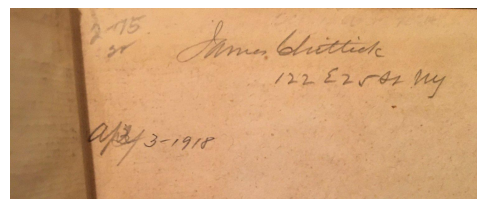 2-75
James Chittick
122 E 25 St NY
Apl 3-1918